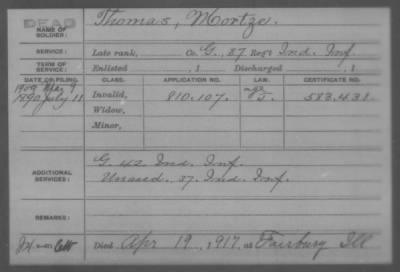 DEAD
NAME OF SOLDIER: Thomas, Mortze.
SERVICE: Late rank, Co. G, 87 Reg't Ind. Inf.
TERM OF SERVICE: Enlisted , 1 Discharged , 1
DATE OF FILING. CLASS. APPLICATION NO. LAW. CERTIFICATE NO.
1909 May 9
1890 July 11 Invalid, 810.107. age 5. 583.431
Widow,
Minor,
G. 42 Ind. Inf.
ADDITIONAL SERVICES: Unassd. 37. Ind. Inf.
REMARKS:
Died Apr 19, 1917, at Fairbury Ill